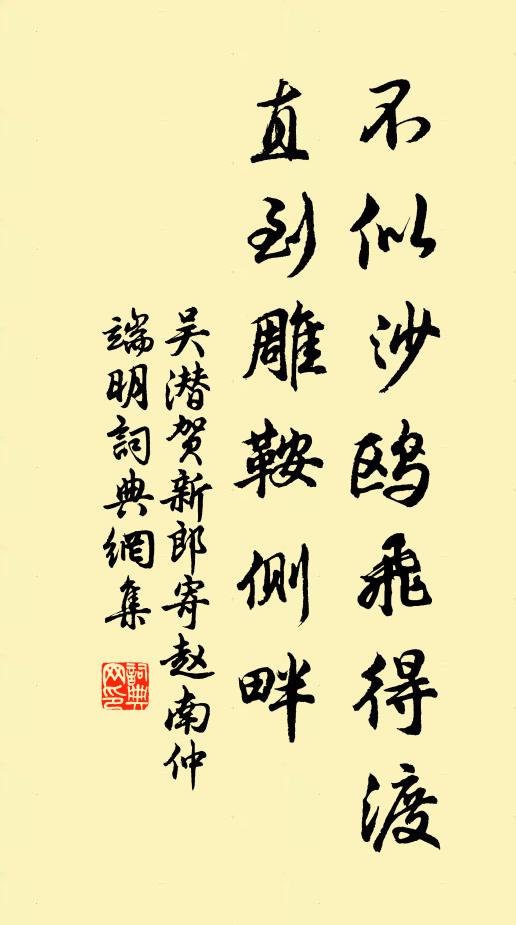 不似沙鸥飛得渡
直到雕鞍側畔
吴潜贺新郎寄赵南仲
端明詞典網集
詞典网印